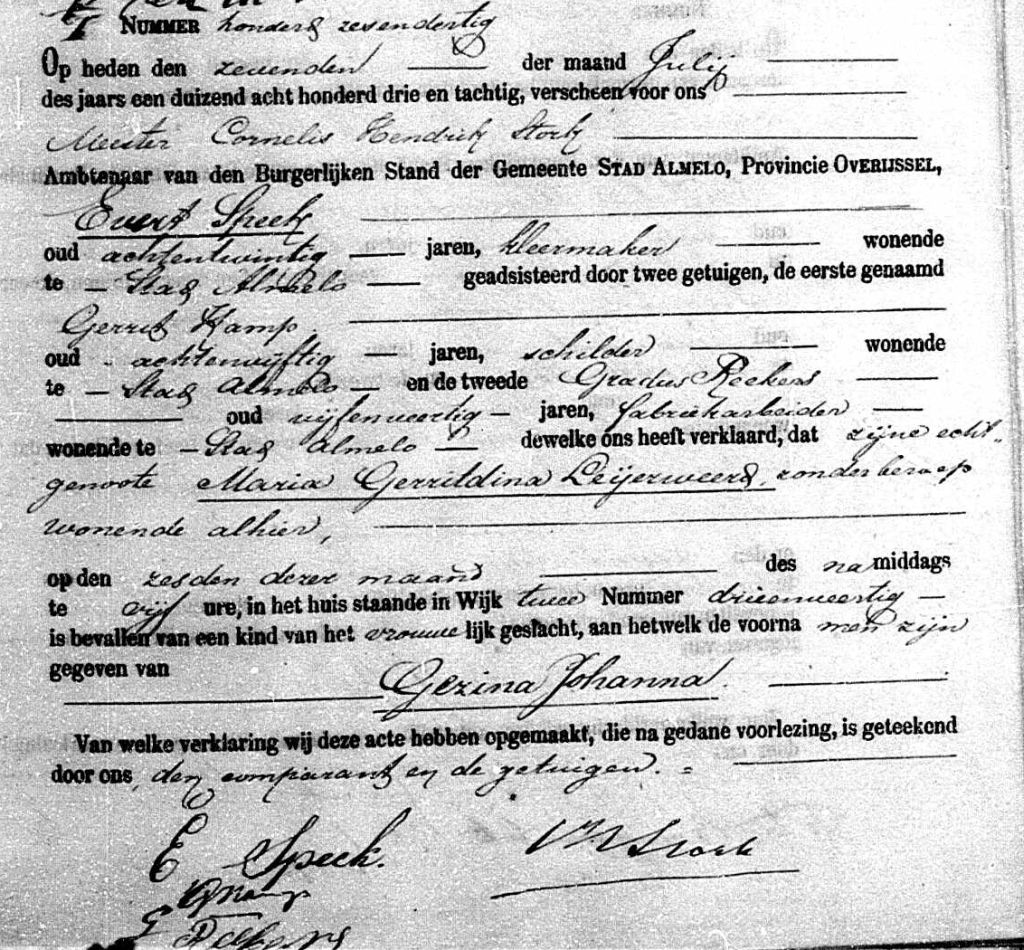 NUMMER honderd zesendertig
Op heden den zevenden der maand Julij
des jaars een duizend acht honderd drie en tachtig, verscheen voor ons
Meester Cornelis Hendrik Stork
Ambtenaar van den Burgerlijken Stand der Gemeente STAD ALMELO, Provincie OVERIJSSEL,
Evert Speek
oud achtentwintig jaren, kleermaker wonende
te – Stad Almelo – geadsisteerd door twee getuigen, de eerste genaamd
Gerrit Kamp
oud achtenvijftig – jaren, schilder wonende
te – Stad Almelo – en de tweede Gradus Reekers
oud vijfenveertig – jaren, fabriekarbeider –
wonende te – Stad Almelo – dewelke ons heeft verklaard, dat zijne echt-
genoote Maria Gerritdina Leijerweerd, zonder beroep
wonende alhier,
op den zesden dezer maand des namiddags
te vijf ure, in het huis staande in Wijk twee Nummer drieenveertig –
is bevallen van een kind van het vrouwelijk geslacht, aan hetwelk de voornamen zijn
gegeven van
Gezina Johanna
Van welke verklaring wij deze acte hebben opgemaakt, die na gedane voorlezing, is geteekend
door ons, den comparant en de getuigen.
E Speek.
Stork